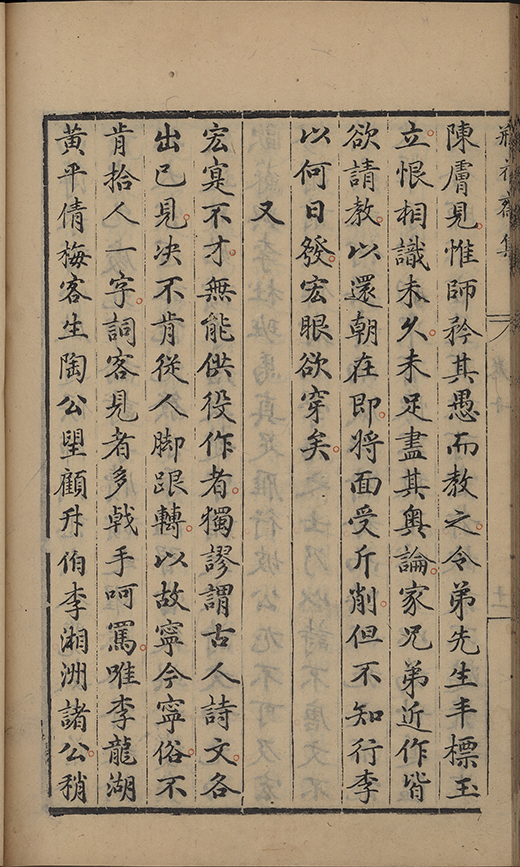 陳膚見惟師矜其愚而教之令弟先生丰標玉
立恨相識未久未足盡其奧論家兄弟近作皆
欲請教以還朝在即將面受斤削但不知行李
以何日發宏眼欲穿矣
又
宏寔不才無能供役作者獨謬謂古人詩文各
出已見决不肯從人脚跟轉以故寧今寧俗不
肯拾人一字詞客見者多戟手呵罵唯李龍湖
黃平倩梅客生陶公朢顧升伯李湘洲諸公稍